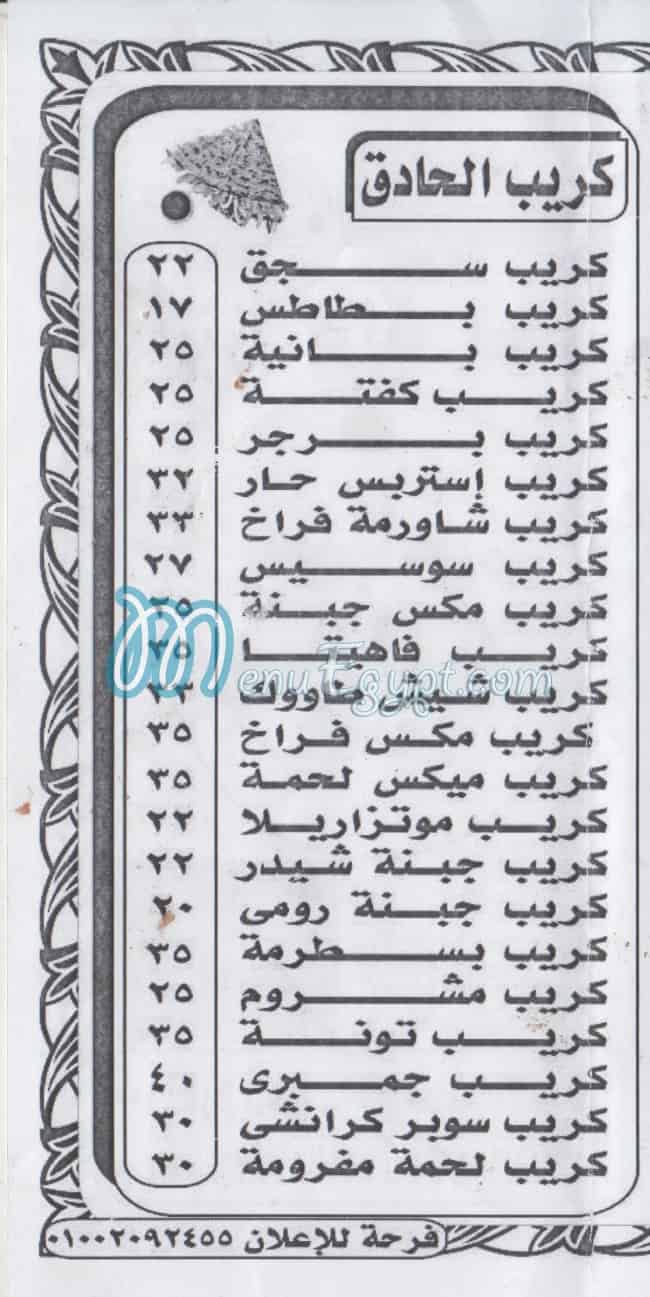 كريب الحادق
كريب سجق ٢٢
كريب بطاطس ١٧
كريب بانية ٢٥
كريب كفتة ٢٥
كريب برجر ٢٥
كريب إستربس حار ٣٢
كريب شاورمة فراخ ٣٣
كريب سوسيس ٢٧
كريب مكس جبنة ٢٥
كريب فاهيتا ٣٥
كريب شيش طاووك ٣٣
كريب مكس فراخ ٣٥
كريب ميكس لحمة ٣٥
كريب موتزاريلا ٢٢
كريب جبنة شيدر ٢٢
كريب جبنة رومى ٢٠
كريب بسطرمة ٣٥
كريب مشروم ٢٥
كريب تونة ٣٥
كريب جمبرى ٤٠
كريب سوبر كرانشى ٣٠
كريب لحمة مفرومة ٣٠
MenuEgypt.com
فرحة للإعلان ٠١٠٠٢٠٩٢٤٥٥